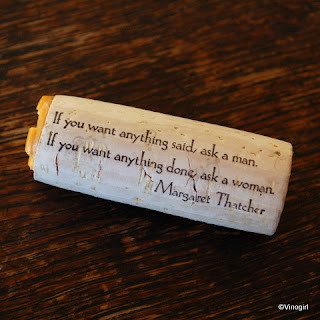 If you want anything said, ask a man.
If you want anything done, ask a woman.
- Margaret Thatcher
©Vinogirl